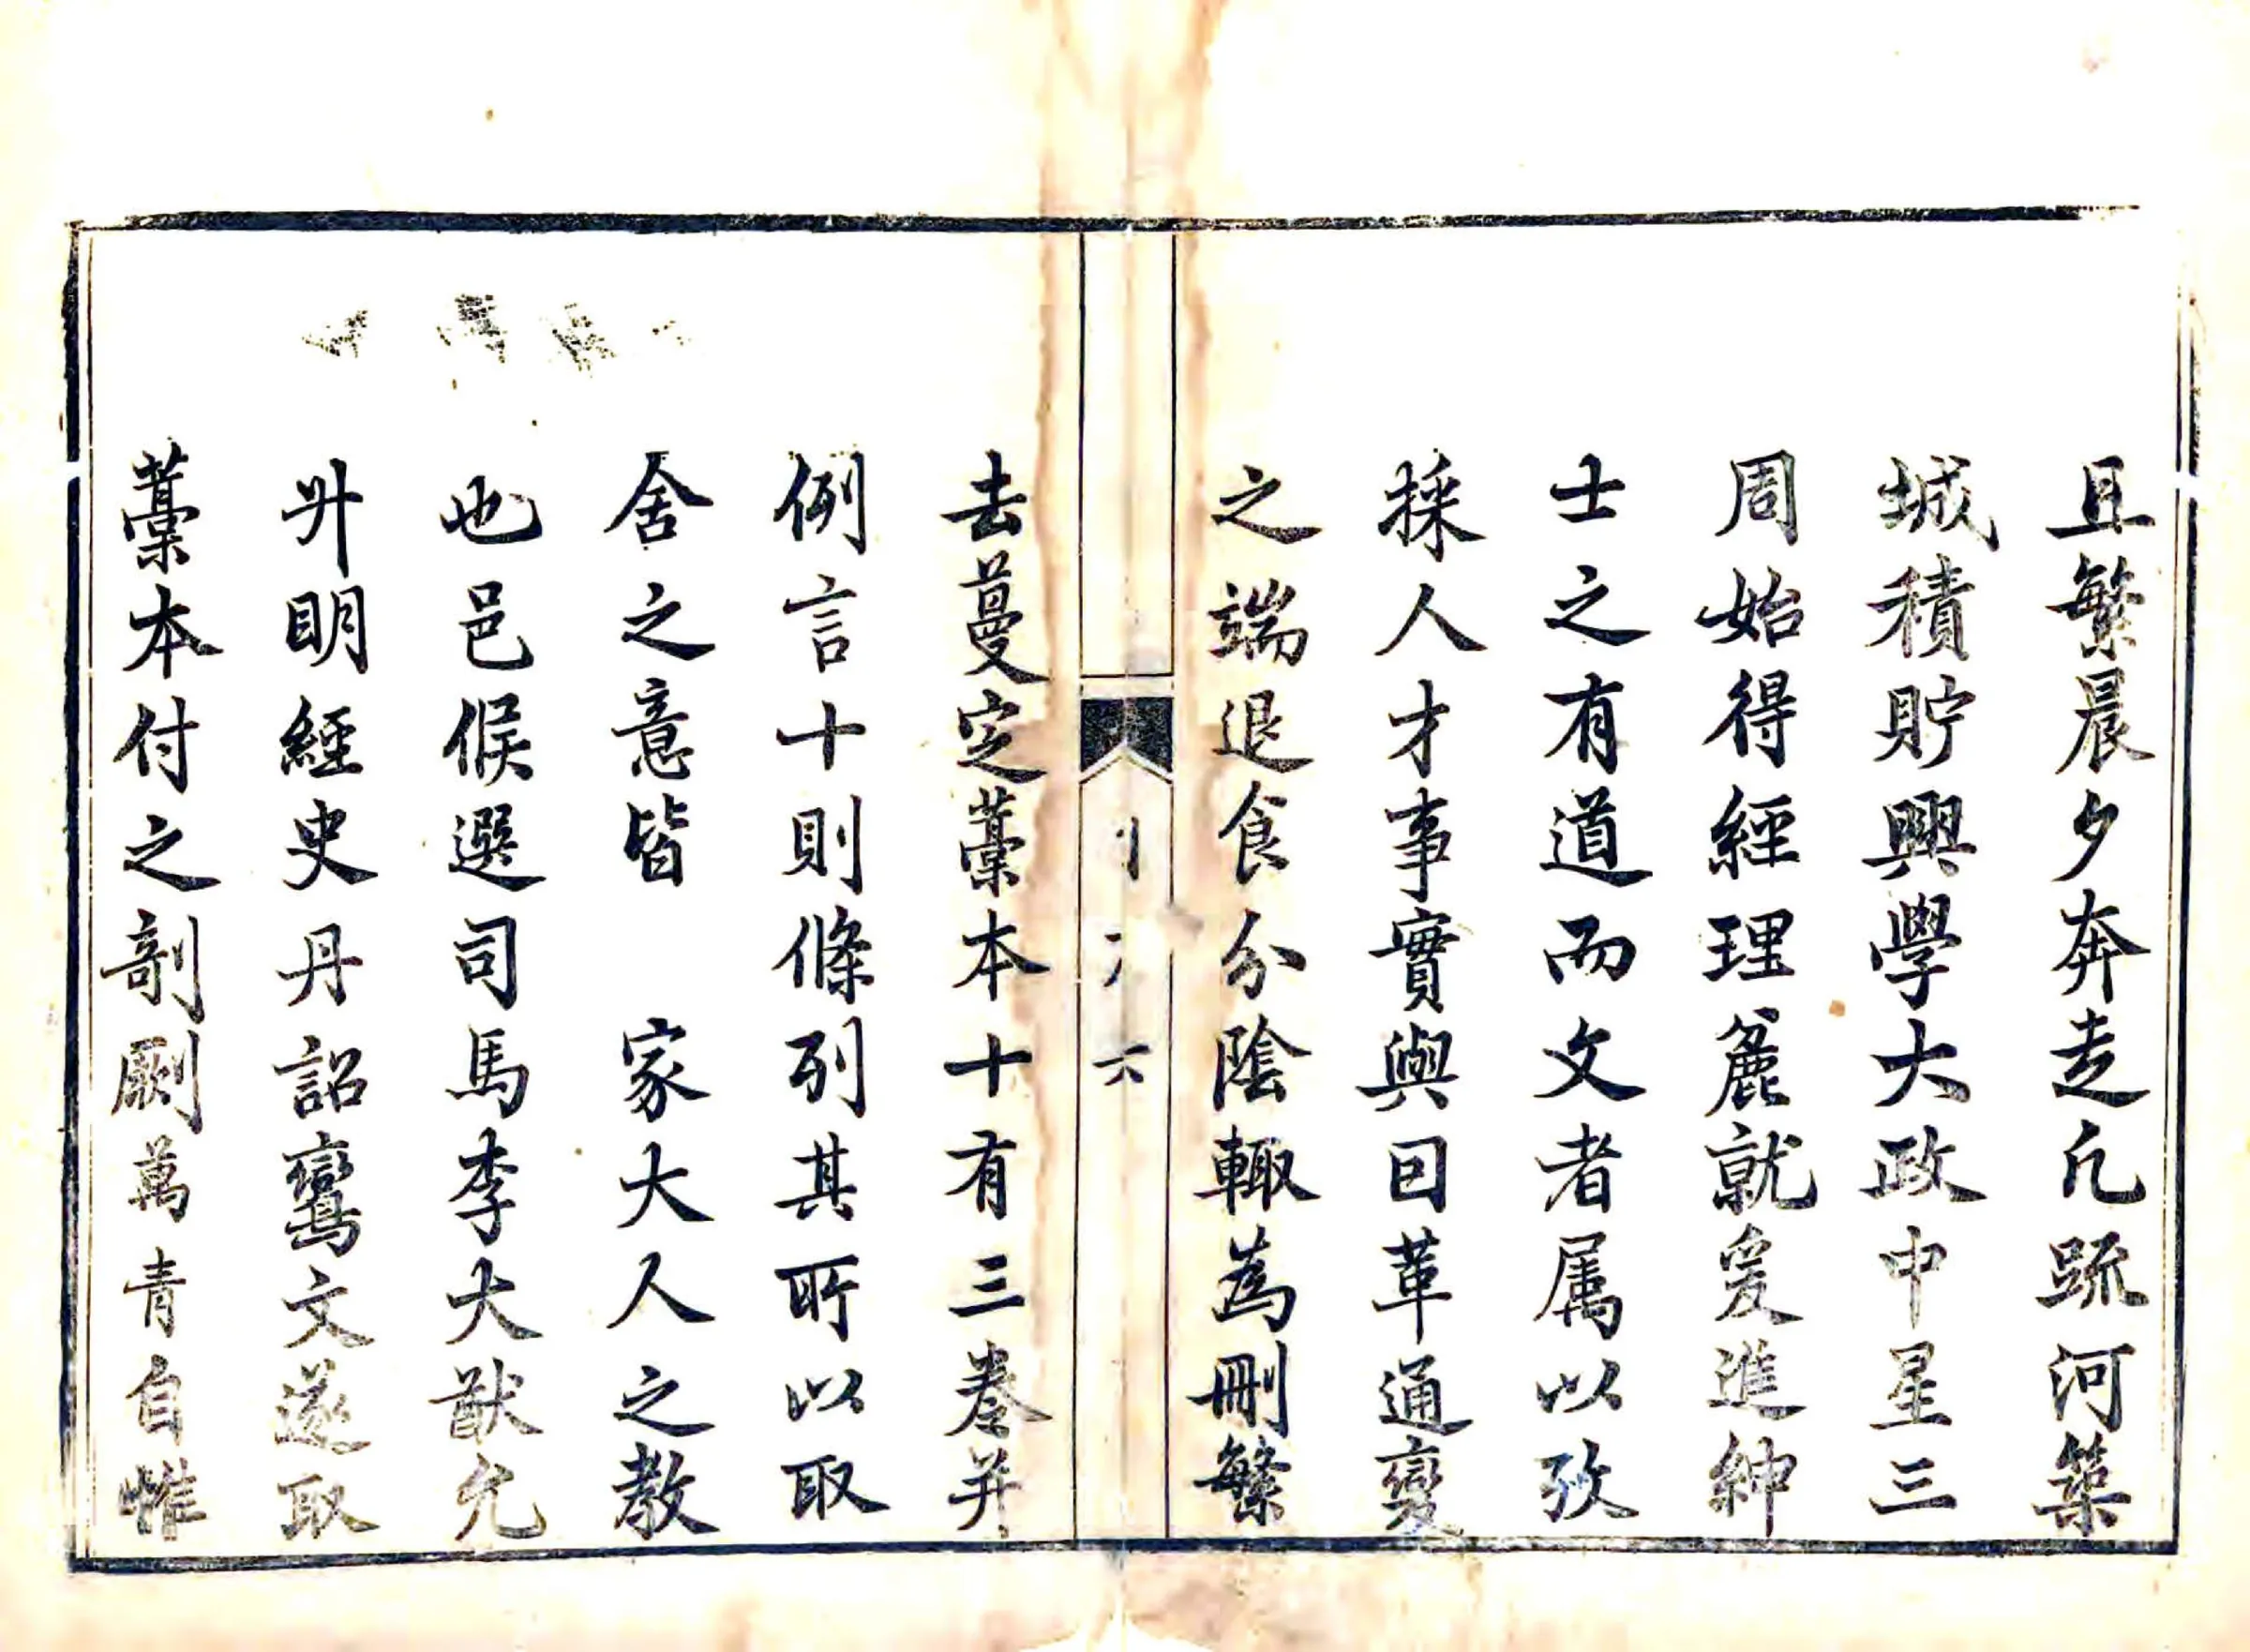 且繁晨夕奔走凡疏河築
城積貯興學大政中星三
周始得經理麄就爰進紳
士之有道而文者属以攷
採人才事實與曰革通變
之端退食分陰輙為刪繁
去蔓定藁本十有三卷并
例言十則條列其所以取
舍之意皆 家大人之教
也邑候選司馬李大猷允
升明經史丹詔鸞文遂取
藁本付之剞劂萬青自惟
六